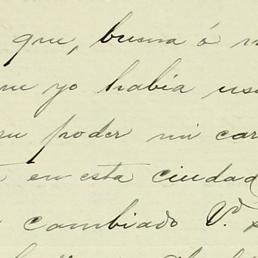 que, buena ó
ue yo había us
su poder mi car
en esta ciudad
cambiado V.